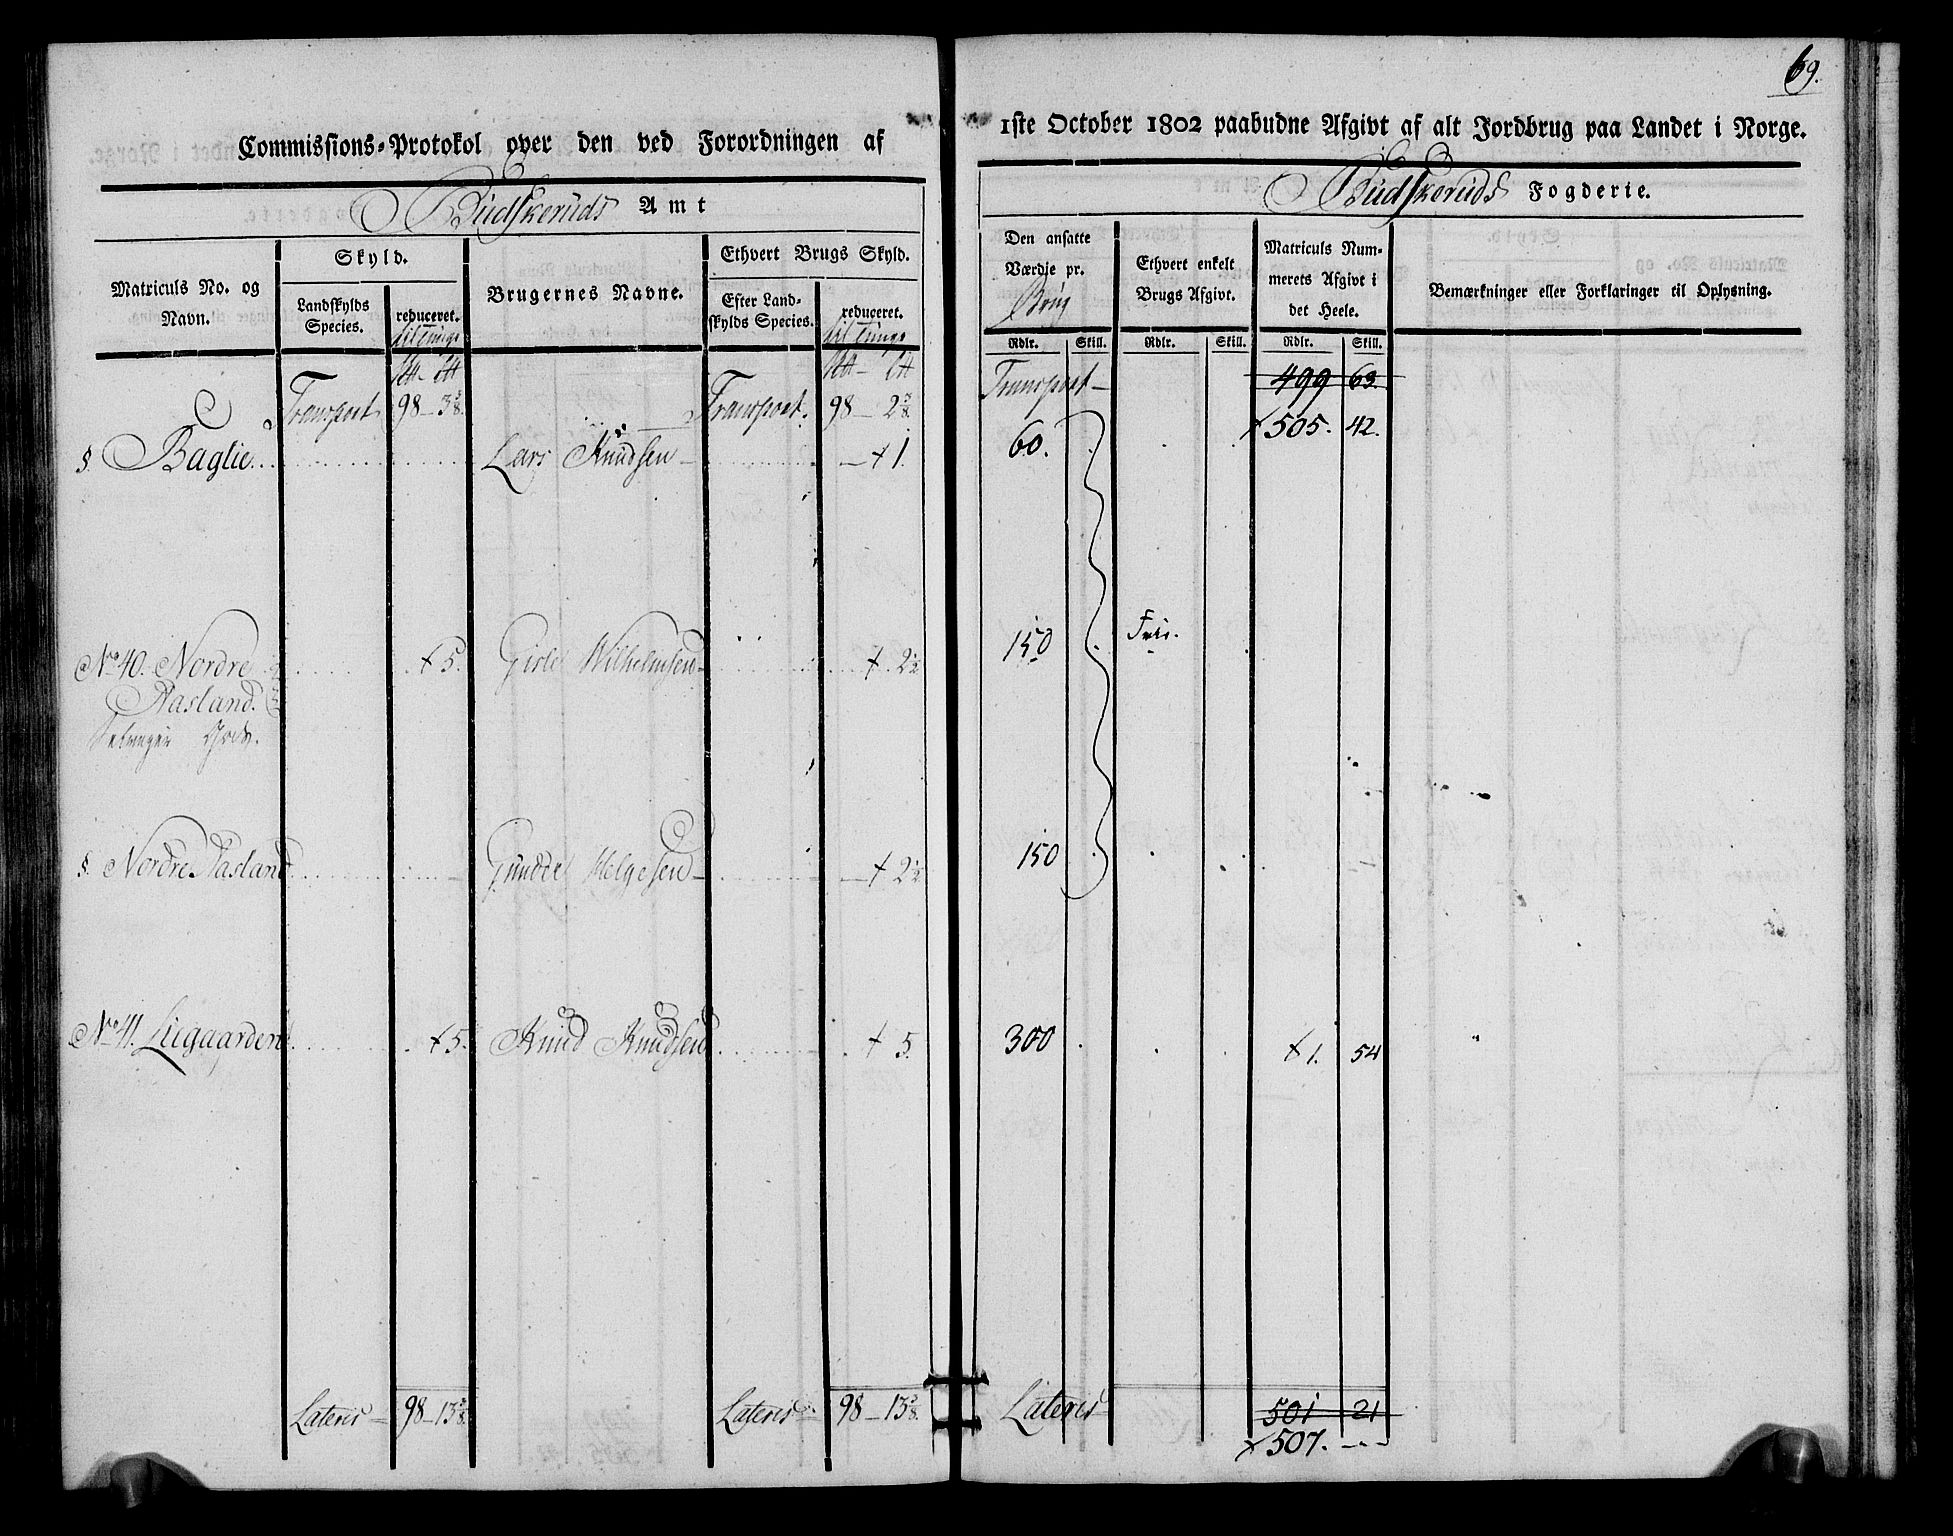 69.
Commissions-Protokol over den ved Forordningen af 1ste October 1802 paabudne Afgivt af alt Jordbrug paa Landet i Norge.
Budskeruds Amt
Budskeruds Fogderie.
Matriculs No. og Navn.
Skyld.
Landskylds Species.
reduceret. til Tunge
Brugernes Navne.
Ethvert Brugs Skyld.
Efter Landskylds Species.
reduceret. til Tunge
Den ansatte Værdie pr. Brug
Ethvert enkelt Brugs Afgivt.
Matriculs Nummerets Afgivt i det Heele.
Bemærkninger eller Forklaringer til Oplysning.
Rdlr. Skill. Rdlr. Skill. Rdlr. Skill.
Transport 98 - 3 3/8. Transport. 98 - 2 3/8. Transport - 499 63.
505. 42.
§. Baglie Lars Knudsen - 1. 60.
No 40. Nordre 5. Wilhelmsen 2½ 150 Frie.
Aasland.
§. Nordre Aasland Gunder Helgesen - 2½ 150
No 41. Liegaarden 5. Knud Knudsen 5. 300 1. 54
Lateris - 98 - 13 3/8 Lateris 98 - 13 3/8. Lateris 501 21
507. - - -